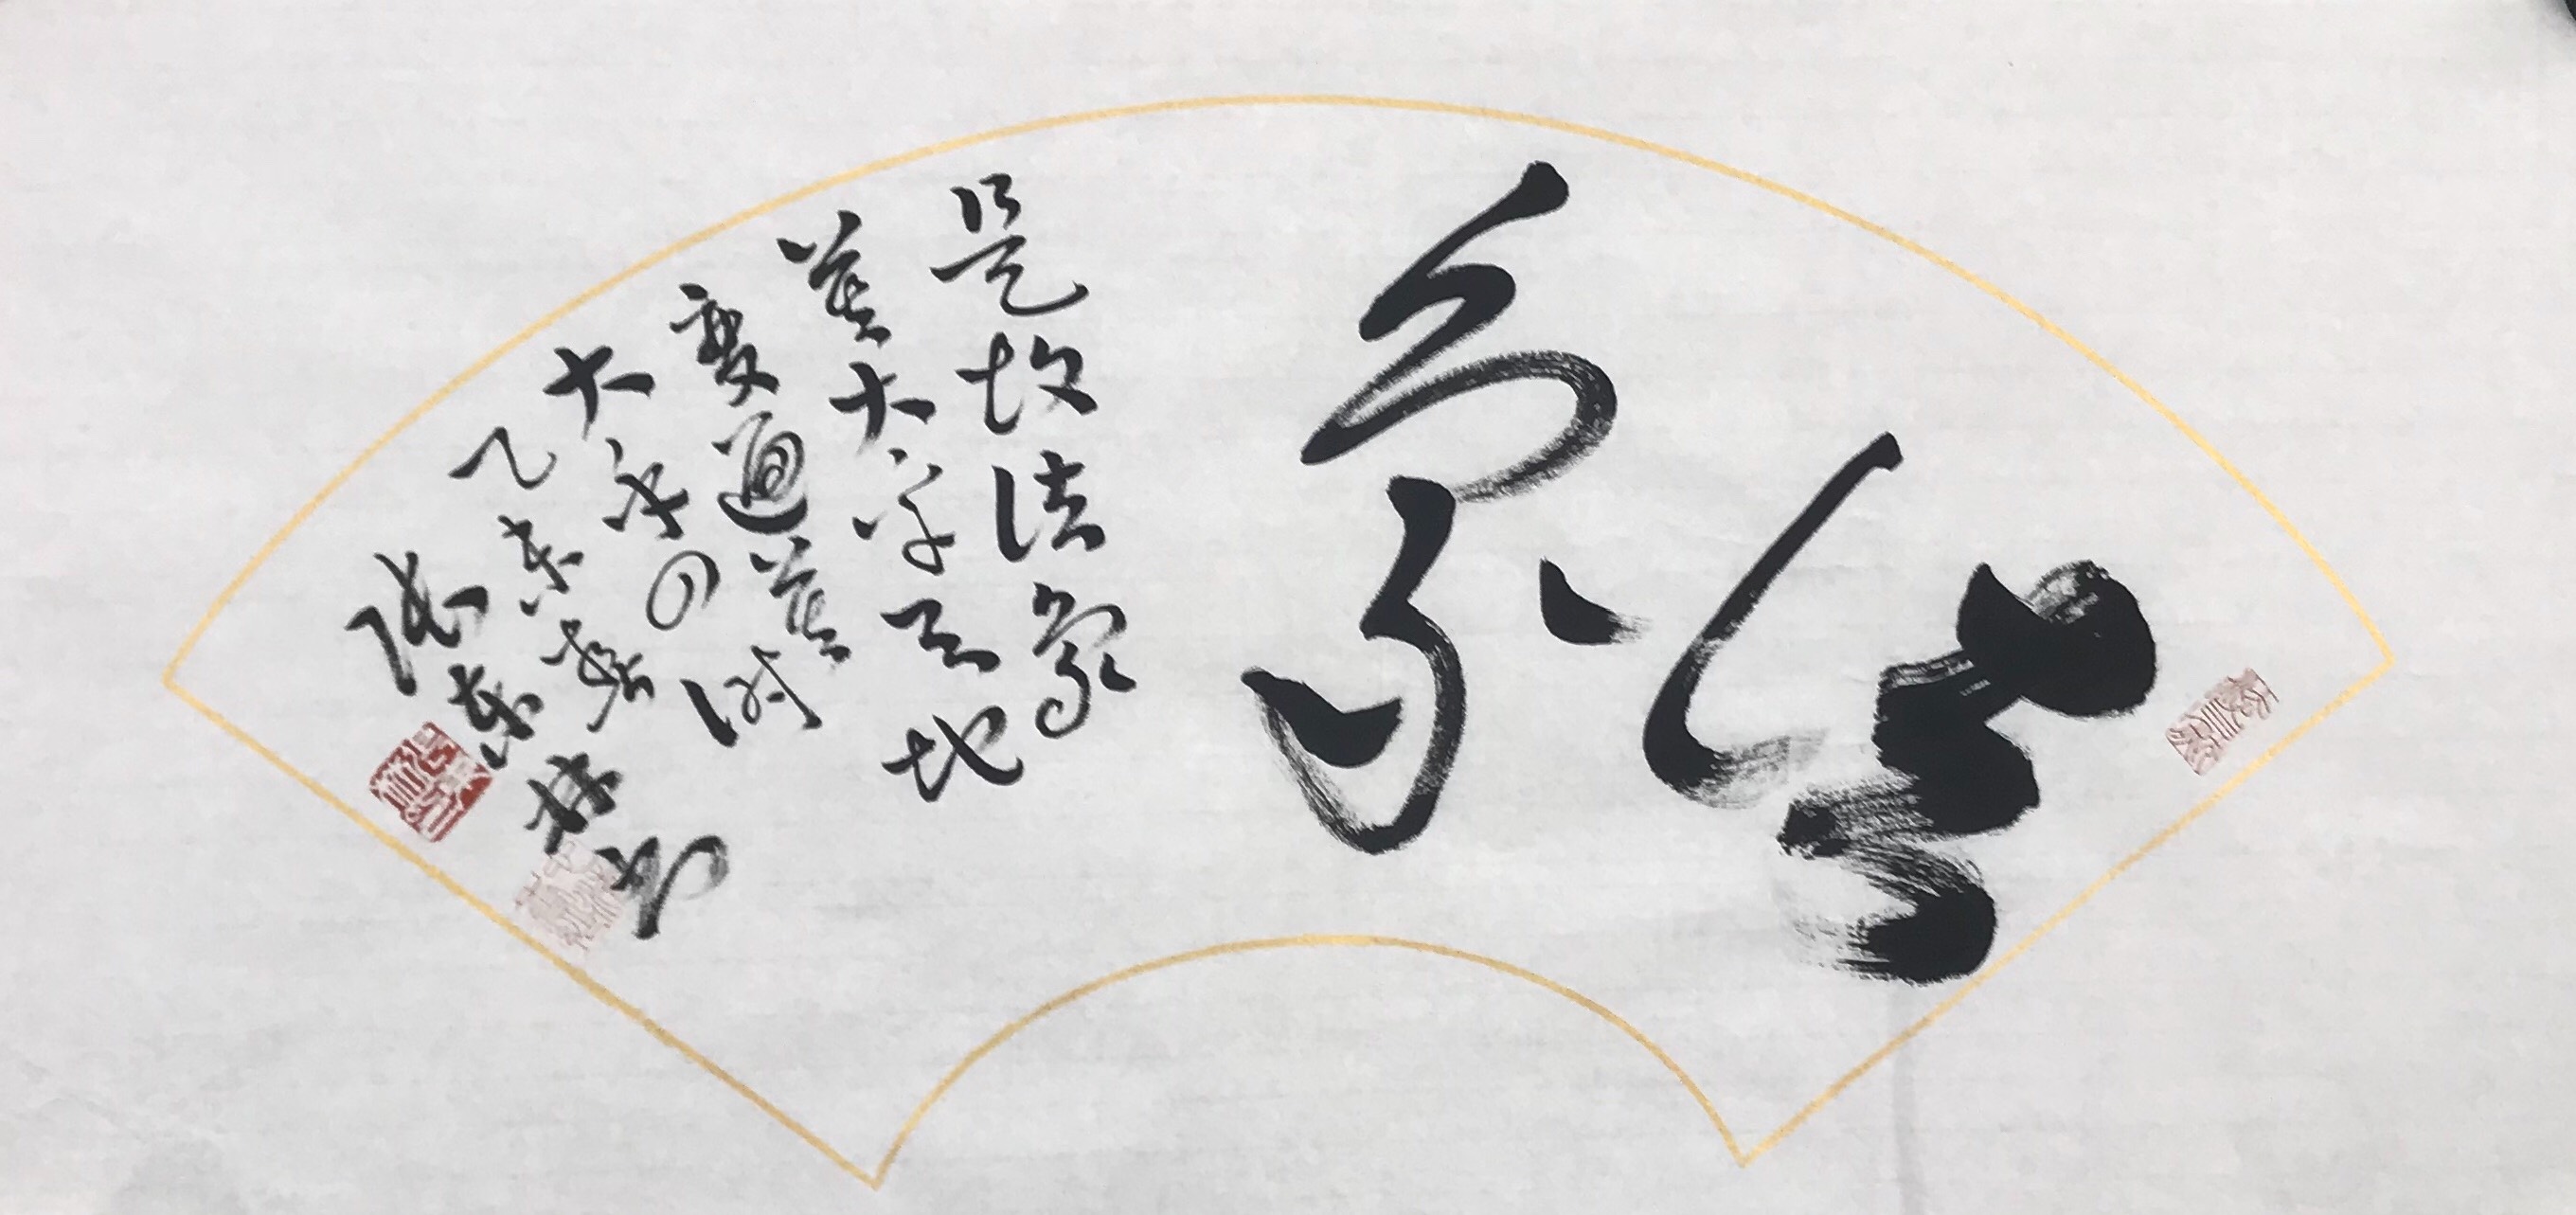 法象
是故法象
莫大乎天地
變通莫
大乎四時
乙未
張東林